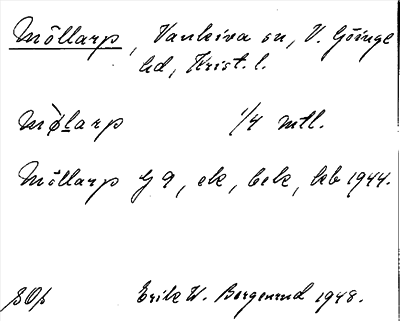 Möllarp, Vankiva sn, V. Göinge
hd, Krist. l.
Mø̀larp 1/4 mtl.
Möllarp G 9, ek, bebk, kb 1944.
SOp Erik W. Borgenrud 1948.